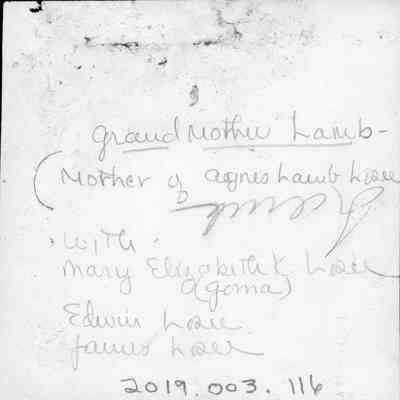 Grandmother Lamb-
(Mother of Agnes Lamb Losee
With
Mary Elizabeth K Losee
(Goma)
Edwin Losee
James Losee
2019.003.116